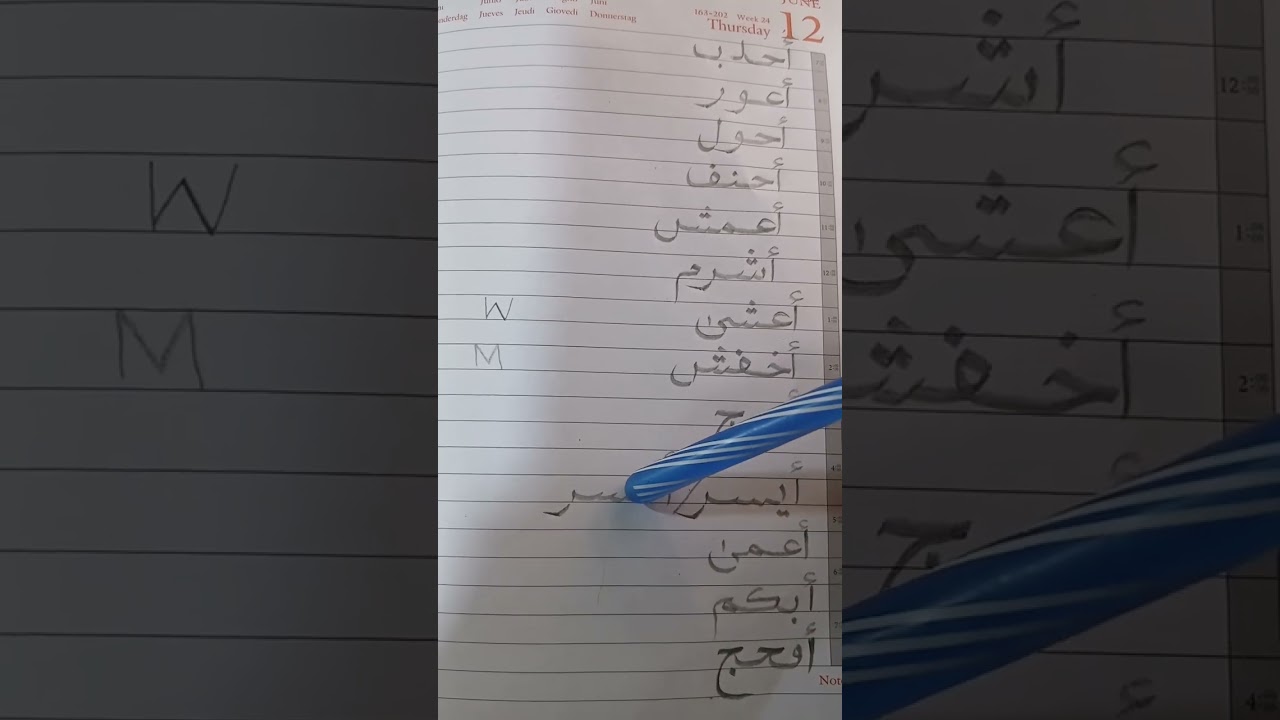 JUNE
163-202 Week 24
Thursday 12
Jueves Jeudi Giovedi Donnerstag
أحدب
أعور
أحول
أحنف
أعمش
أشرم
أعشى W
أخفش M
أيسر/
أعمى
أبكم
أفحج